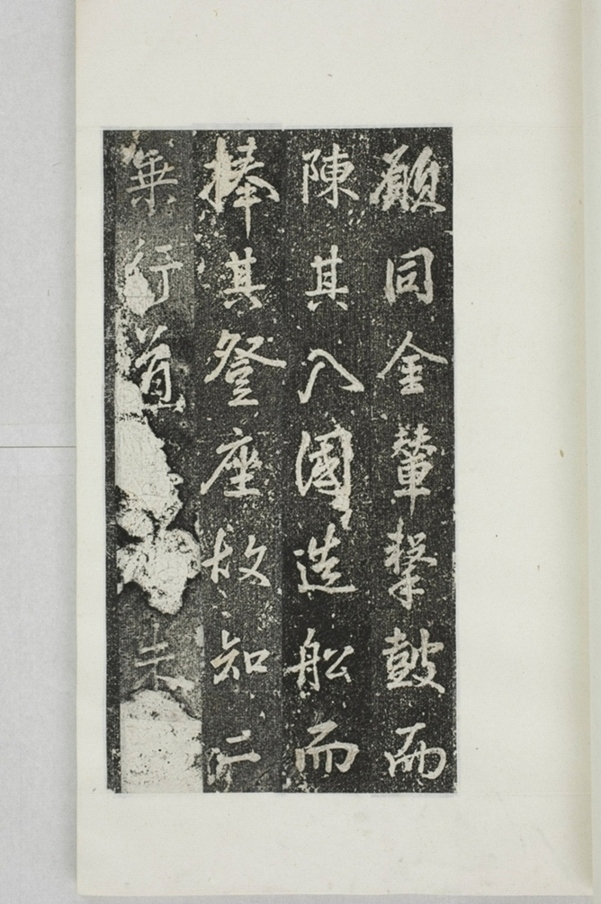 願同金輦擊鼓而
陳其入國造舩而
捧其登座故知二
乘行道未